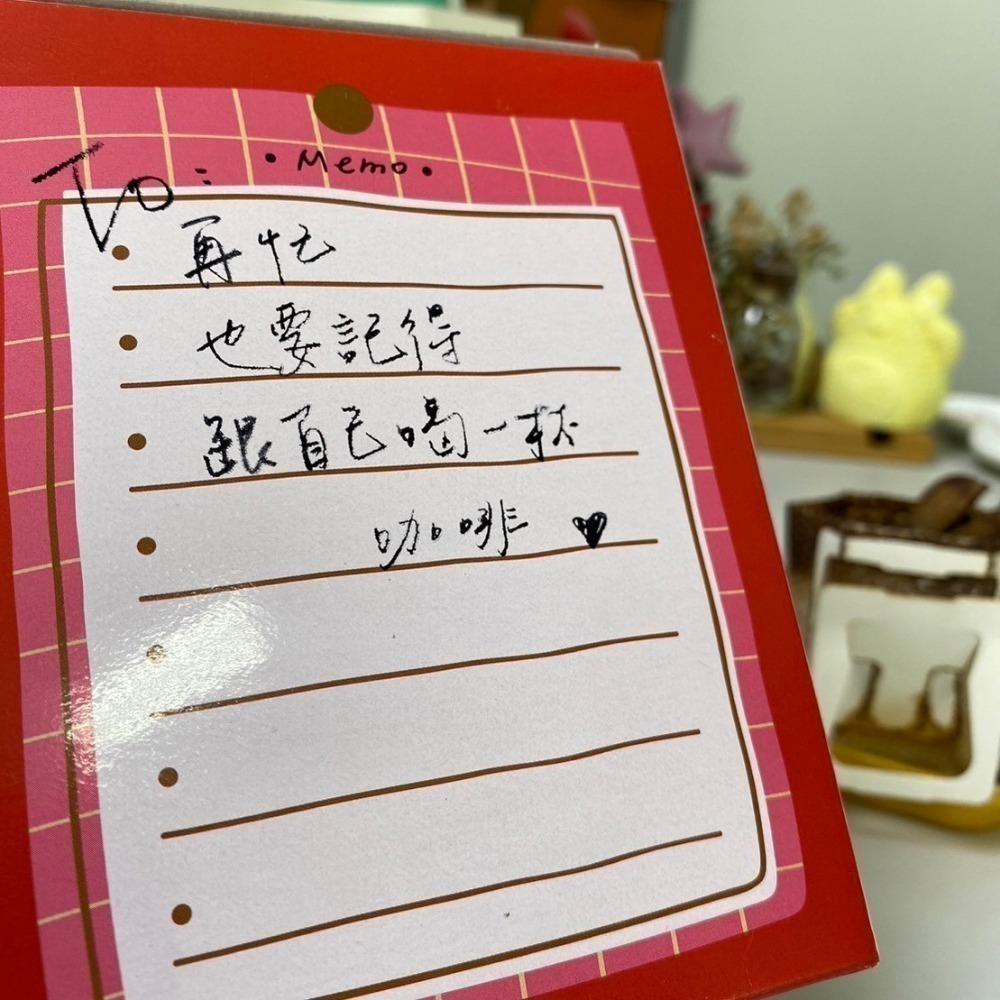 • Memo •
To:
再忙
也要記得
跟自己喝一杯
咖啡 ♥